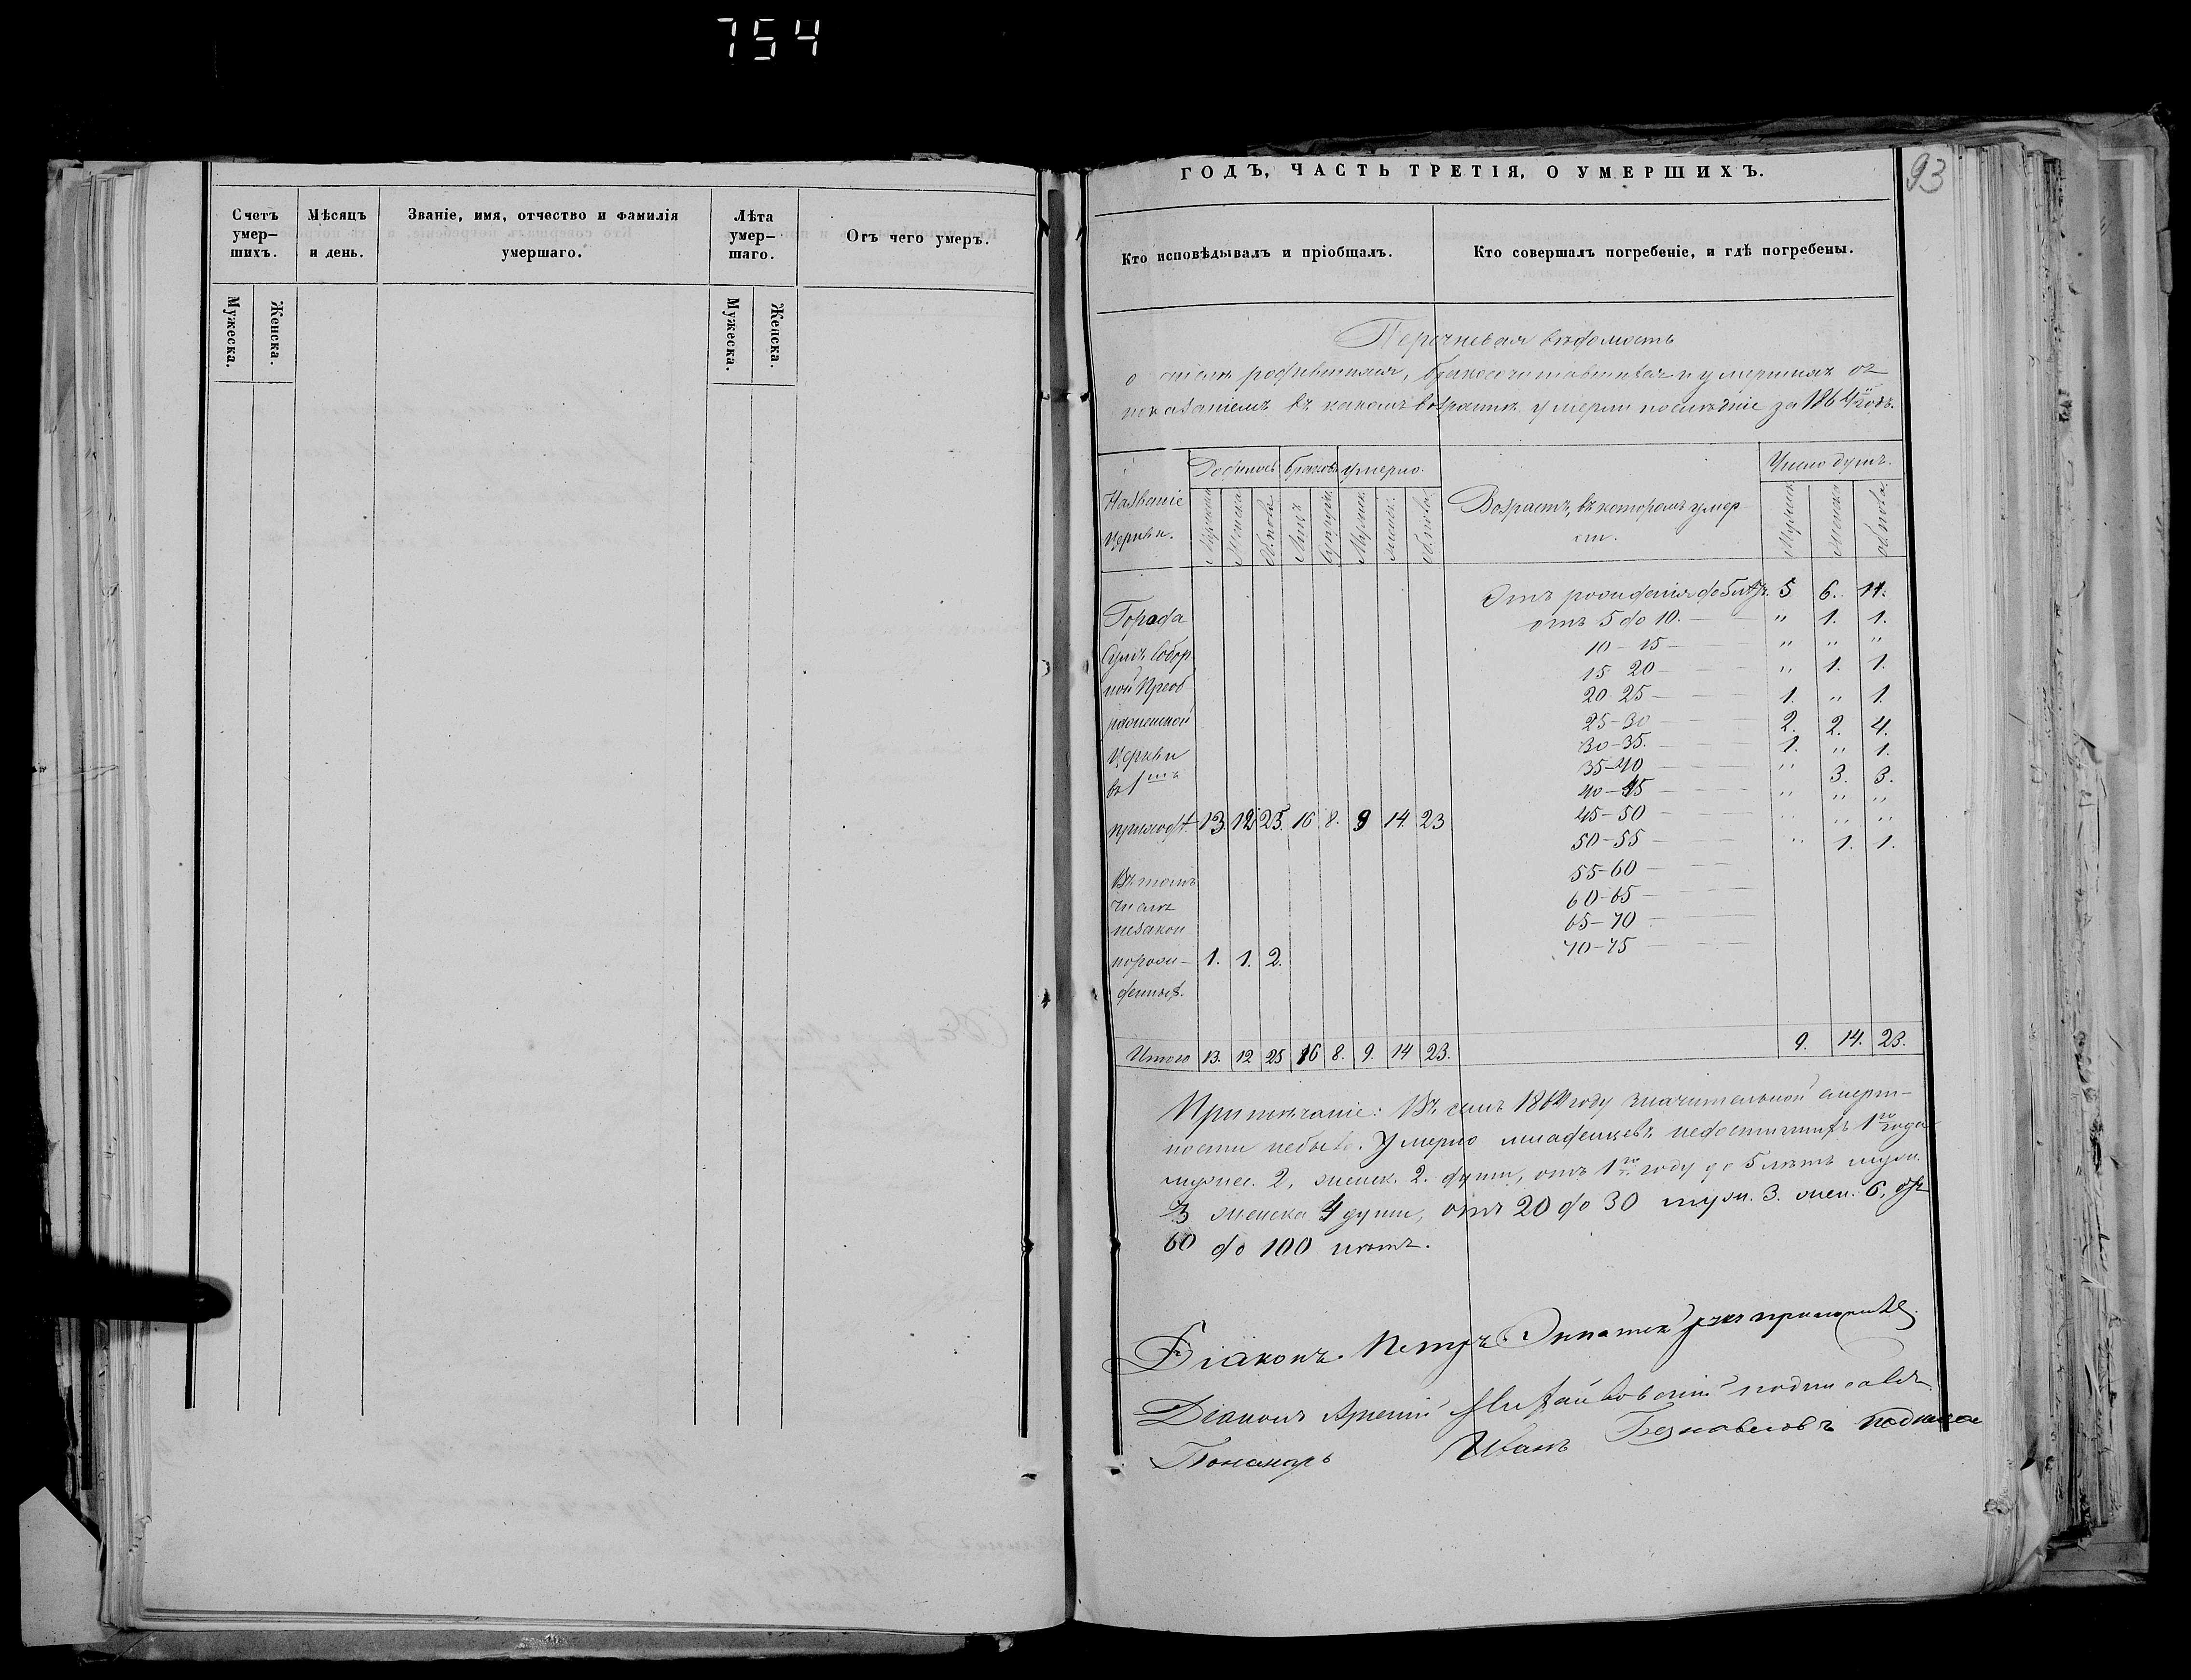 754
Счетъ умер-
шихъ.
Мѣсяцъ
и день.
Званіе, имя, отчество и фамилія
умершаго.
Лѣта
умер-
шаго.
Отъ чего умеръ.
Мужеска.
Женска.
Мужеска.
Женска.
ГОДЪ, ЧАСТЬ ТРЕТІЯ, О УМЕРШИХЪ.
93
Кто исповѣдывалъ и пріобщалъ.
Кто совершалъ погребеніе, и гдѣ погребены.
Перечневая вѣдомость
о числѣ родившихся, бракосочитавшихся и умершихъ съ
показаніемъ въ какомъ возрастѣ умерли послѣдніе за 1864й годъ.
Названіе
церкви.
Родилось
браковъ
умерло.
Мужеска
Женска
Обоего
Мужеск.
Женск.
Возрастъ, въ которомъ умер
ли.
Число душъ.
Мужеск.
Женска
Города
Сумъ Собор
ной Преоб
раженской
Церкви
въ 1мъ
приходѣ. 13. 12. 25. 16 8. 9 14. 23
Въ томъ
числѣ
незакон
норож- 1. 1. 2.
денныхъ.
Итого 13. 12 25 16 8. 9. 14 23.
Отъ рожденія до 5 лѣтъ. 5 6. 11.
отъ 5 до 10. — " 1. 1.
10-15 — " " "
15 20 — " 1. 1.
20-25 — 1. " 1.
25-30 — 2. 2. 4.
30-35. — 1. " 1.
35-40 — " 3. 3.
40-45 — " " "
45-50 — " " "
50-55 — " 1. 1.
55-60 —
60-65 —
65-70 —
70-75 —
9. 14. 23.
Примѣчаніе: Въ семъ 1864 году значительной смерт-
ности небыло. Умерло младенцевъ недостигшихъ 1го года
мужес. 2, женск. 2. души, отъ 1го году до 5 лѣтъ муж.
3 женска 4 души, отъ 20 до 30 муж. 3. жен. 6, отъ
60 до 100 нѣтъ.
Діаконъ Петръ
Діаконъ Арсеній подписалъ
Пономарь Иванъ